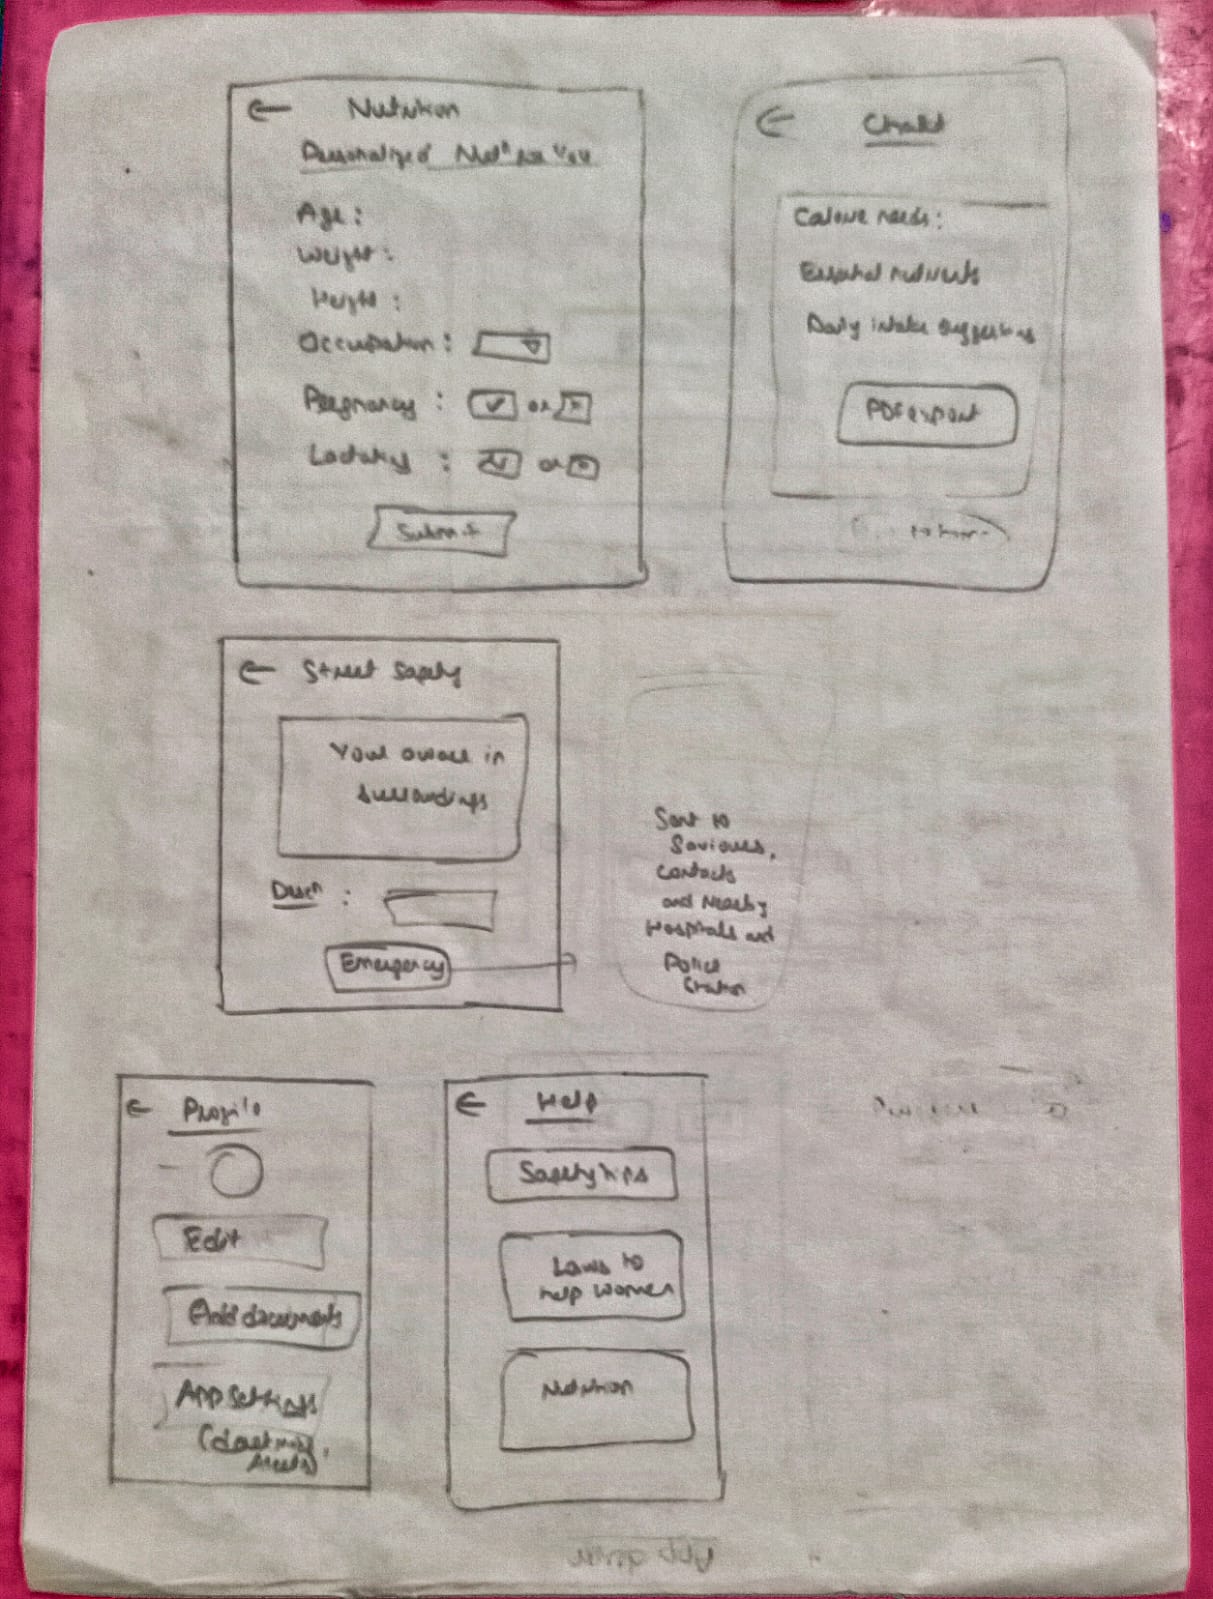 ← Nutrition
Personalized Nutn for You
Age :
Weight :
Height :
Occupation :
Pregnancy : or
Lactating : or
Submit
← Chart
Calorie needs :
Essential nutrients
Daily intake suggestions
PDF export
← Street Safety
Your aware in
surroundings
Descn :
Emergency
Sent to
Saviours,
contacts
and Nearby
Hospitals and
Police
Station
← Profile
Edit
Add documents
App settings
← Help
Safety tips
Laws to
help women
Nutrition